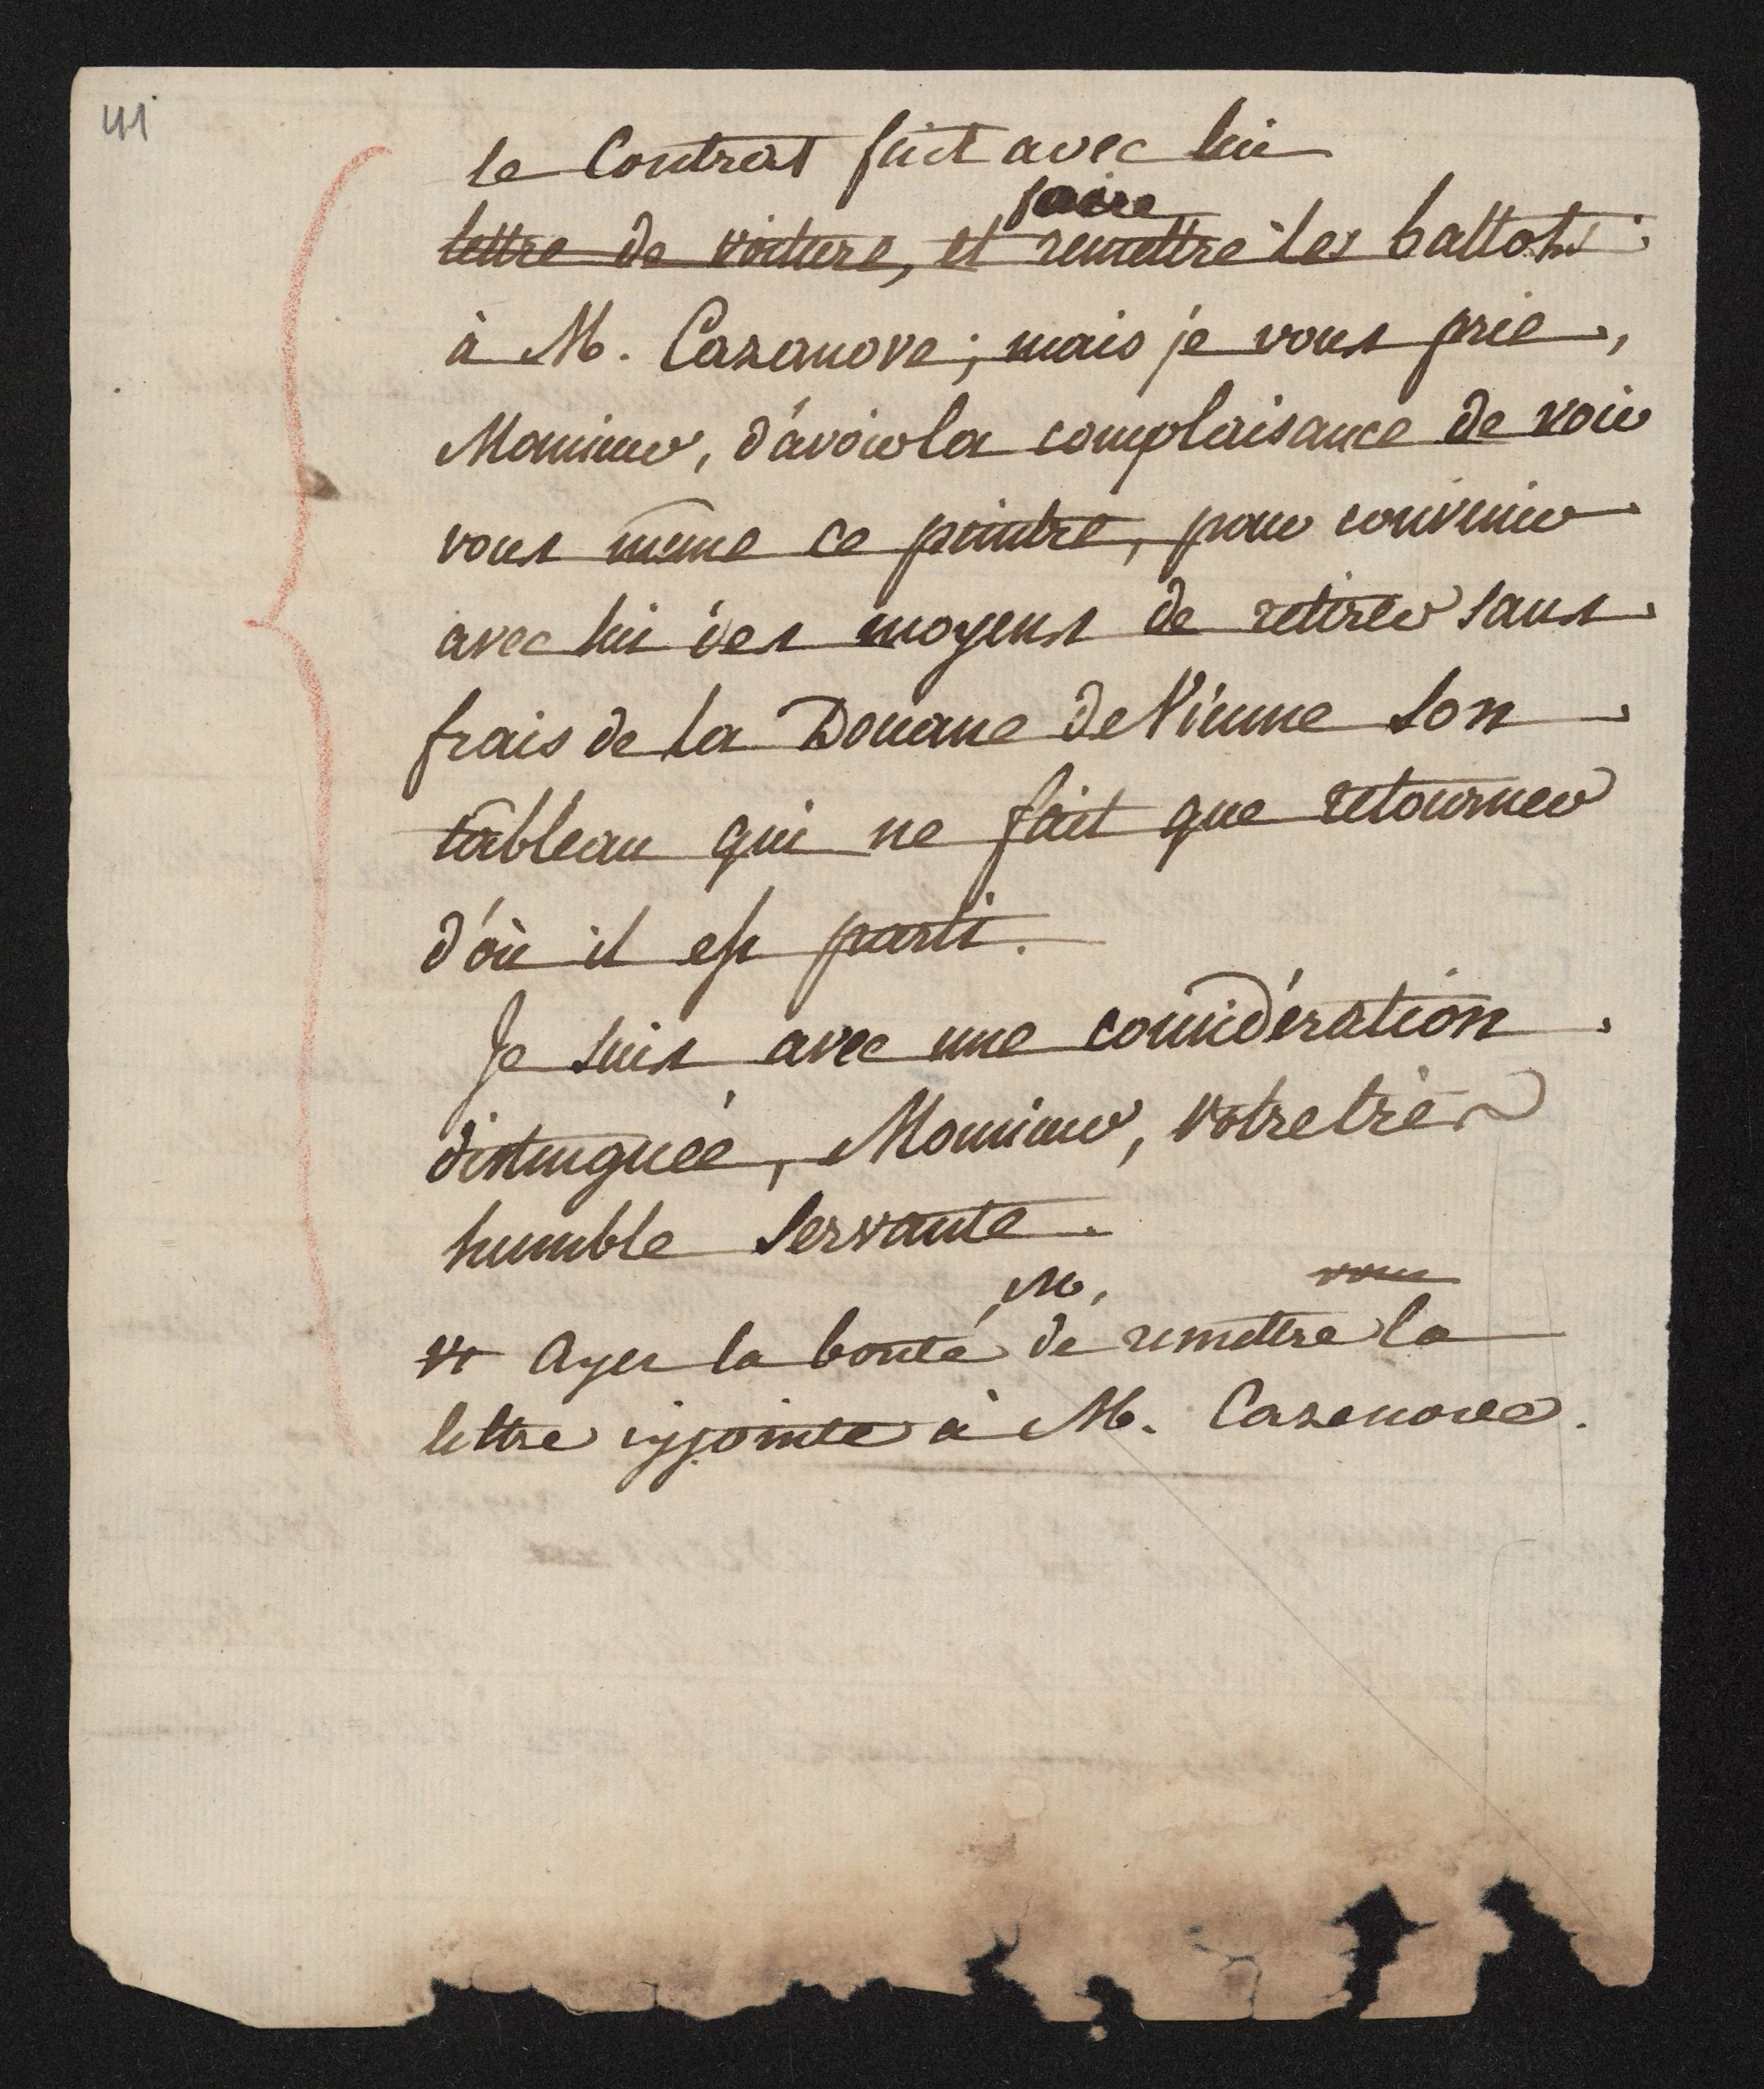 41
le Contrat fait avec lui
faire
lettre de voiture, et remettre les ballots
à M. Casanove; mais je vous prie,
Monsieur, d'avoir la complaisance de voir
vous même ce peintre, pour convenir
avec lui des moyens de retirer sans
frais de la Douane de Vienne son
tableau qui ne fait que retourner
d'où il est parti.
Je suis avec une considération
distinguée, Monsieur, votre très
humble servante.
M, vous
Ayez la bonté de remettre la
lettre cyjointe à M. Casenove.